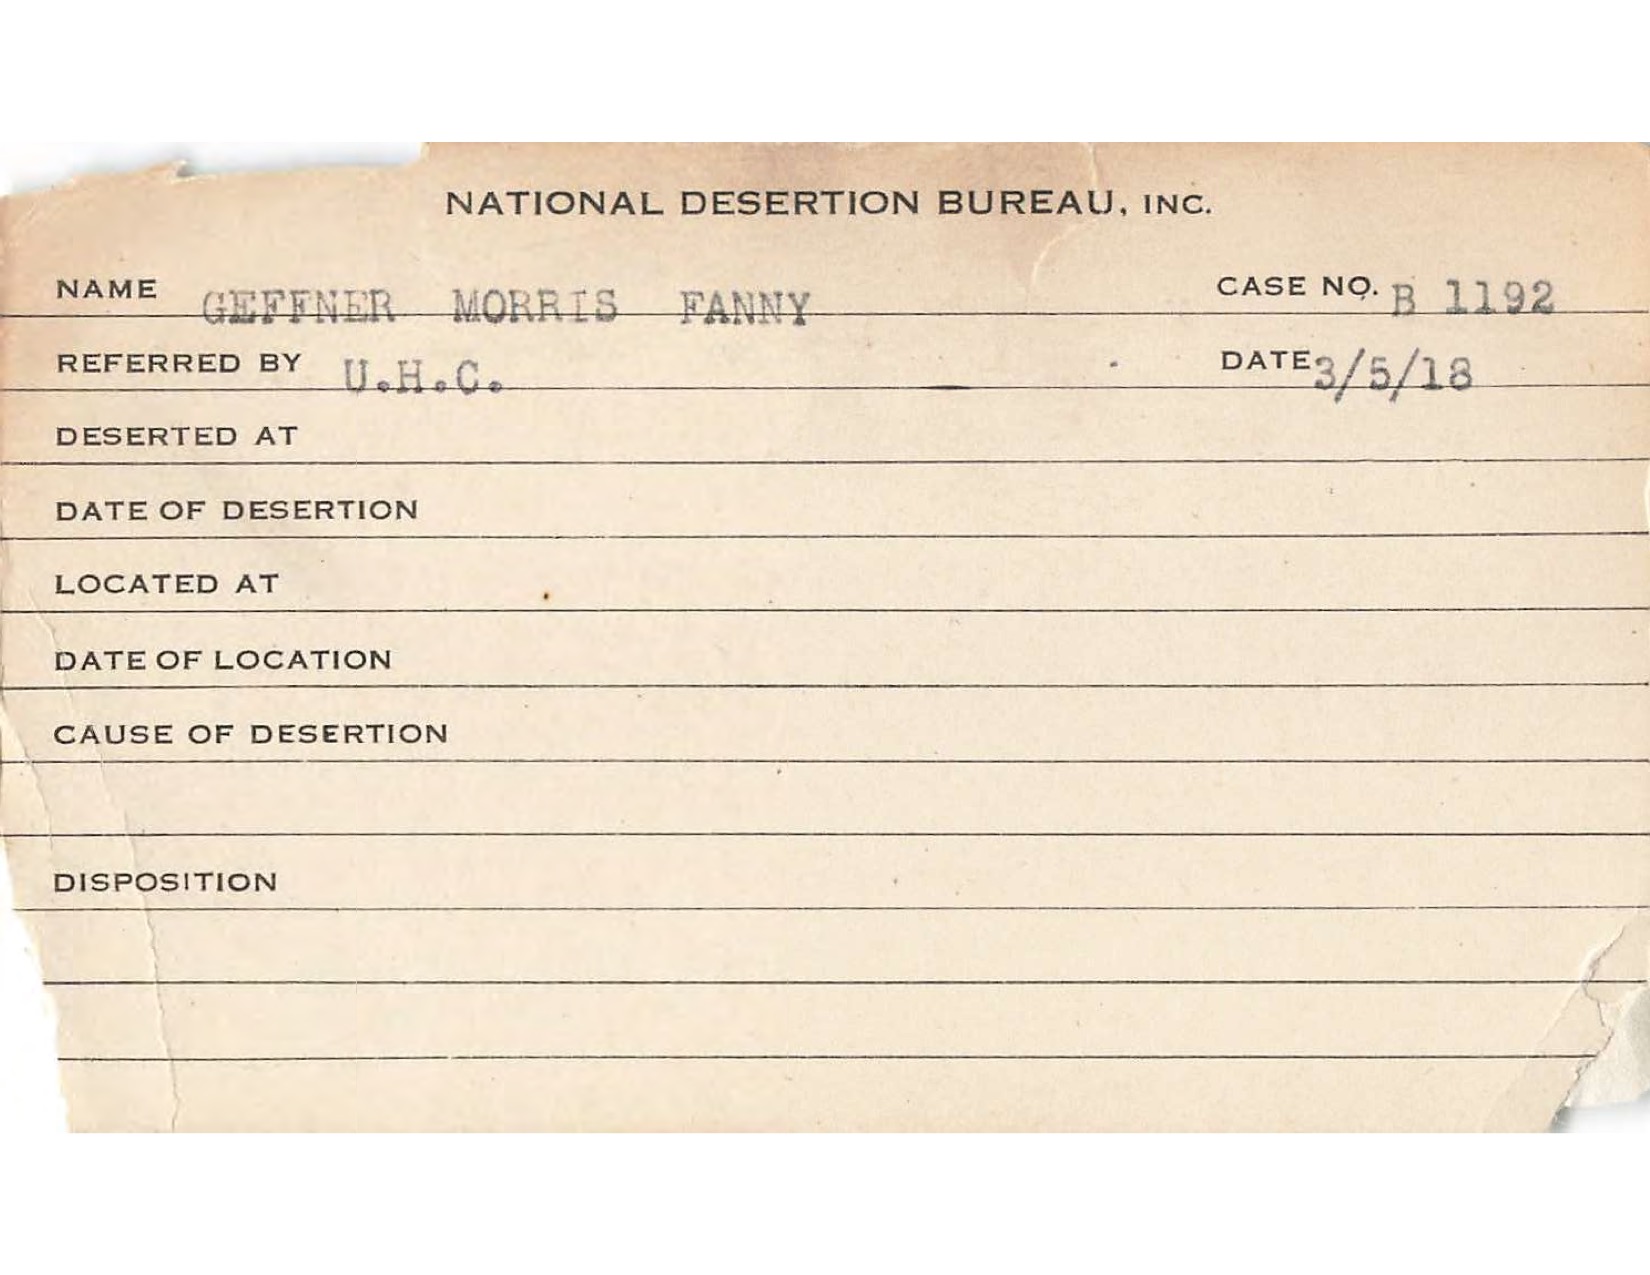 NATIONAL DESERTION BUREAU, INC.
NAME GEFFNER MORRIS FANNY CASE NO. B 1192
REFERRED BY U.H.C. DATE 3/5/18
DESERTED AT
DATE OF DESERTION
LOCATED AT
DATE OF LOCATION
CAUSE OF DESERTION
DISPOSITION